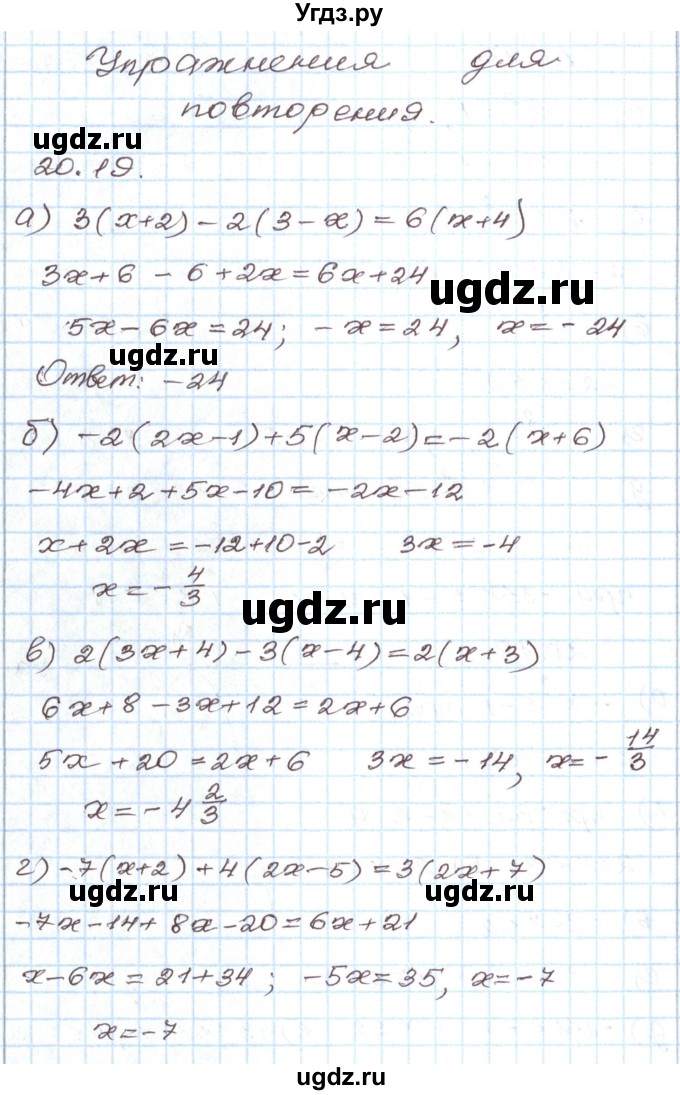 Угдз.ру
Упражнения для
повторения.
ugdz.ru
20.19.
а) 3(x+2)-2(3-x)=6(x+4)
3x+6-6+2x=6x+24
ugdz.ru
5x-6x=24; -x=24, x=-24
ugdz.ru
Ответ: -24
б) -2(2x-1)+5(x-2)=-2(x+6)
-4x+2+5x-10=-2x-12
x+2x=-12+10-2 3x=-4
x=-4/3
ugdz.ru
в) 2(3x+4)-3(x-4)=2(x+3)
6x+8-3x+12=2x+6
5x+20=2x+6 3x=-14, x=-14/3
x=-4 2/3
г) -7(x+2)+4(2x-5)=3(2x+7)
ugdz.ru ugdz.ru
-7x-14+8x-20=6x+21
x-6x=21+34; -5x=35, x=-7
x=-7
ugdz.ru